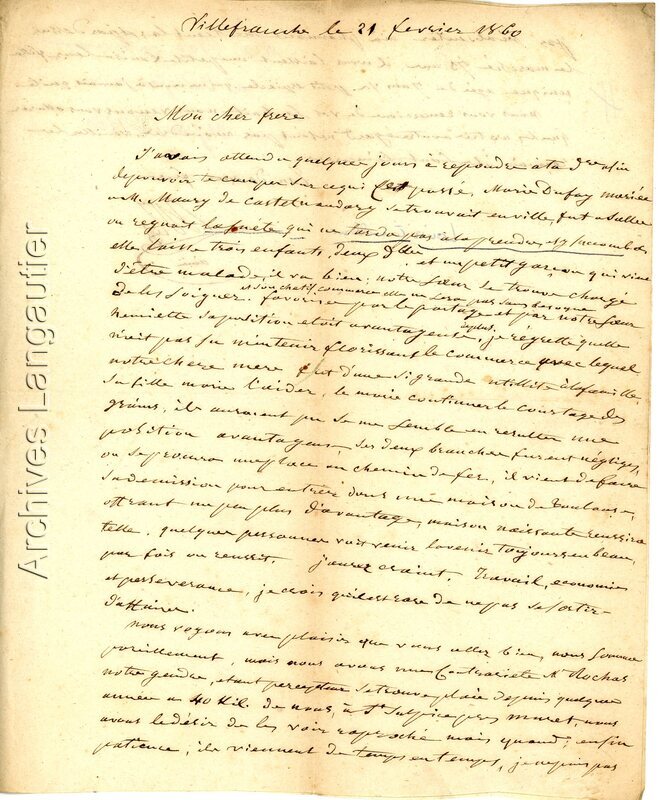 Villefranche le 21 fevrier 1860
Mon cher frere
J'avais attendu quelques jours a repondre a ta d^re afin
de pouvoir te camper sur ce qui s'est passé, Marie Dufay mariée
a Mr Maury de Castelnaudary se trouvait en ville, fut a Salles
ou regnait la suète qui ne tarda pas a la prendre, et y succomba
elle laisse trois enfants, deux f^lles et un petit garçon qui vient
d'être malade, il va bien. notre sœur se trouve chargé
et son chetif commerce elle ne sera pas sans besogne
de les soigner. favorisée par le partage et par notre sœur
henriette sa position etoit avantageuse, je regrette quelle
n'ait pas su maintenir florissant le commerce avec lequel
notre chere mere fut d'une si grande utillité a la famille,
sa fille marie l'aider, le marie continuer le courtage des
grains, ils auroient pu se me semble en resulter une
position avantageuse, ses deux branches furent négligés,
on se procura une place au chemin de fer, il vient de faire
sa demission pour entrer dans une maison de Toulouse,
offrant un peu plus d'avantage, maison naissante reussira
telle, quelques personnes voit venir lavenir toujours en beau,
par fois on reussit. j'aurez craint. Travail, economies
et perseverance, je crois qu'il est rare de ne pas se sortir
d'affaires.
nous voyons avec plaisir que vous allez bien, nous sommes
pareillement, mais nous avons une Contrariete Mr Rochas
notre gendre, etant percepteur se trouve placé depuis quelques
année a 40 Kil. de nous, à St Sulpice pres muret, nous
avons le désir de les voir raproché mais quand; enfin
patience, ils viennent de temps en temps, je ne puis pas
Archives Langautier